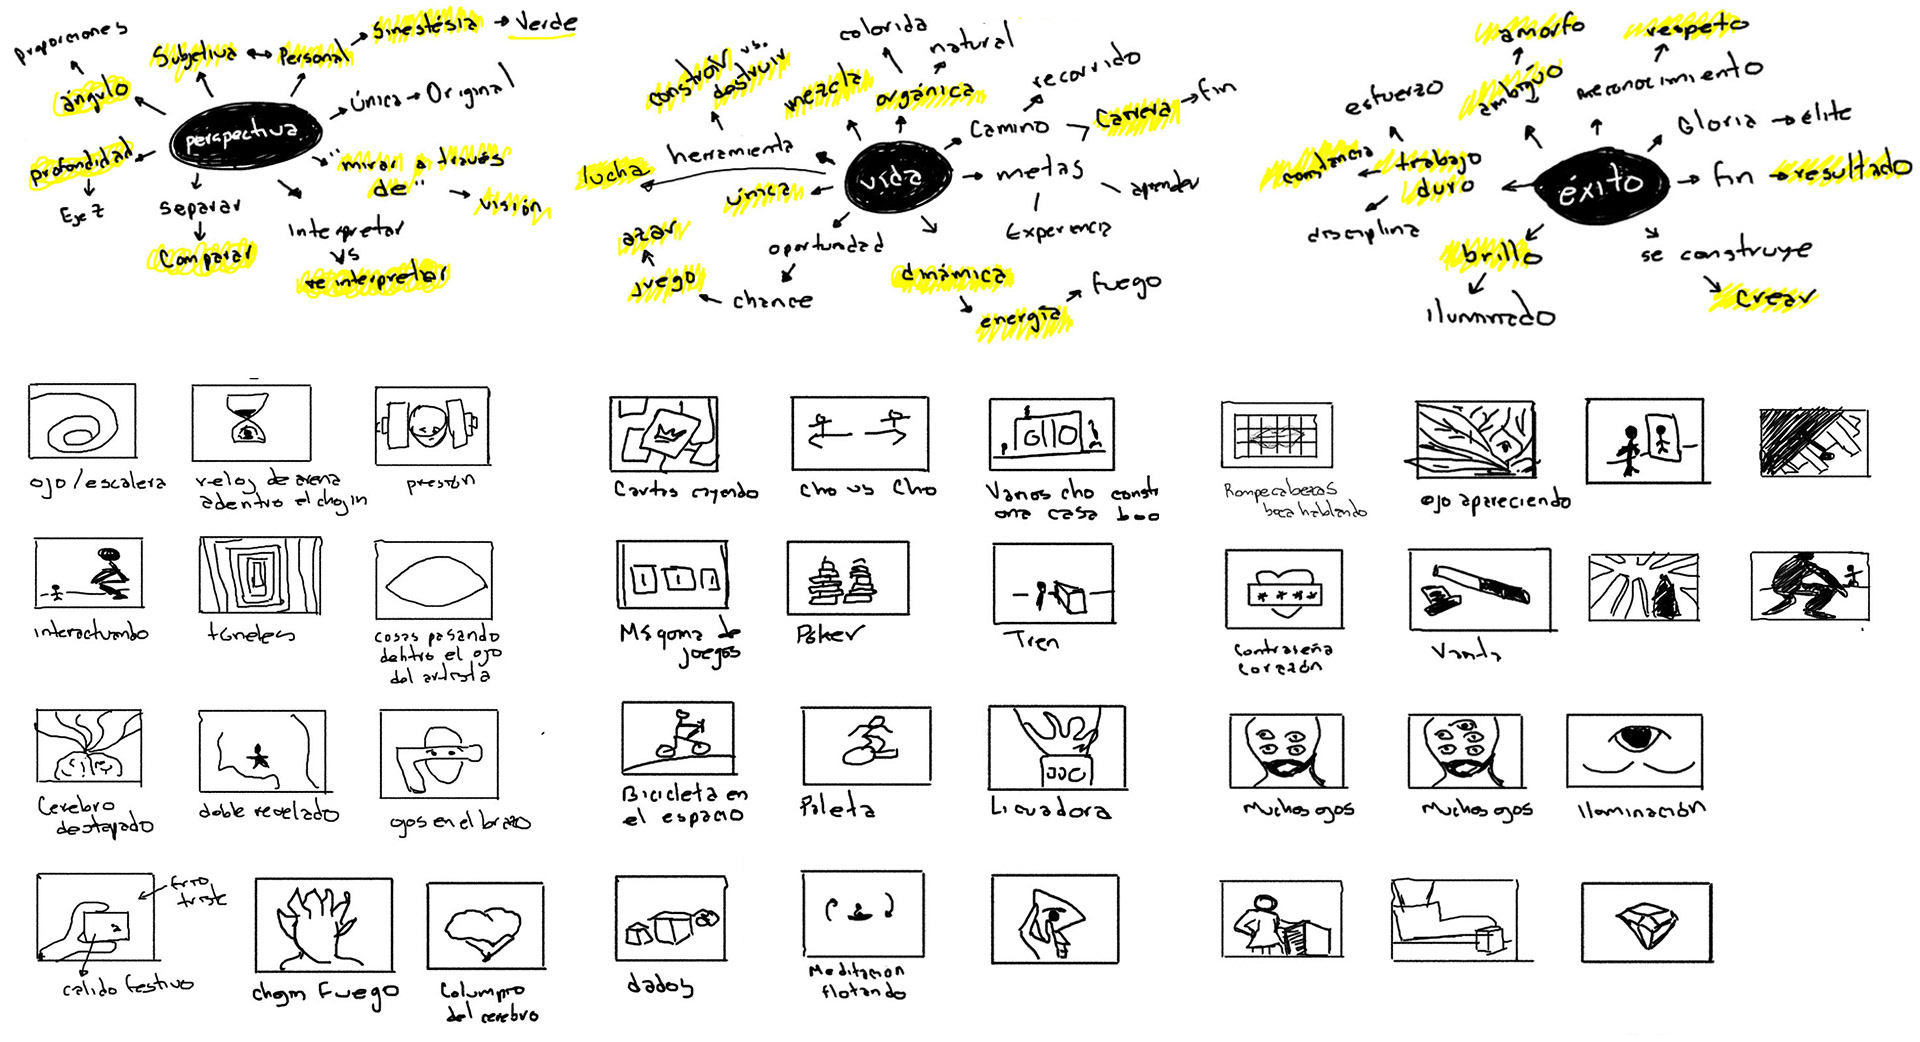 proporciones
Subjetiva
Personal
Sinestésia
Verde
ángulo
Única
Original
perspectiva
profundidad
"mirar a través
de"
visión
Eje Z
separar
Comparar
Interpretar
vs
reinterpretar
construir vs.
destruir
colorida
natural
mezcla
orgánica
recorrido
Carrera
fin
Camino
herramienta
lucha
vida
metas
aprender
única
Experiencia
azar
oportunidad
juego
chance
dinámica
energía
fuego
amorfo
respeto
ambiguo
reconocimiento
esfuerzo
Gloria
élite
constancia
trabajo
duro
éxito
fin
resultado
disciplina
brillo
Iluminado
se construye
Crear
ojo/escalera
reloj de arena
adentro el chojin
presión
Cartas cayendo
cho vs cho
Varios cho constr
una casa
Rompecabezas
boca hablando
ojo apareciendo
interactuando
túneles
cosas pasando
dentro el ojo
del artista
Máquina de
juegos
Póker
Tren
Contraseña
corazón
Vanta
Cerebro
destapado
doble revelado
ojos en el brazo
Bicicleta en
el espacio
Pileta
Licuadora
Muchos ojos
Muchos ojos
Iluminación
frío
triste
calido festivo
chojin Fuego
Columpio
del cerebro
dados
Meditacion
flotando